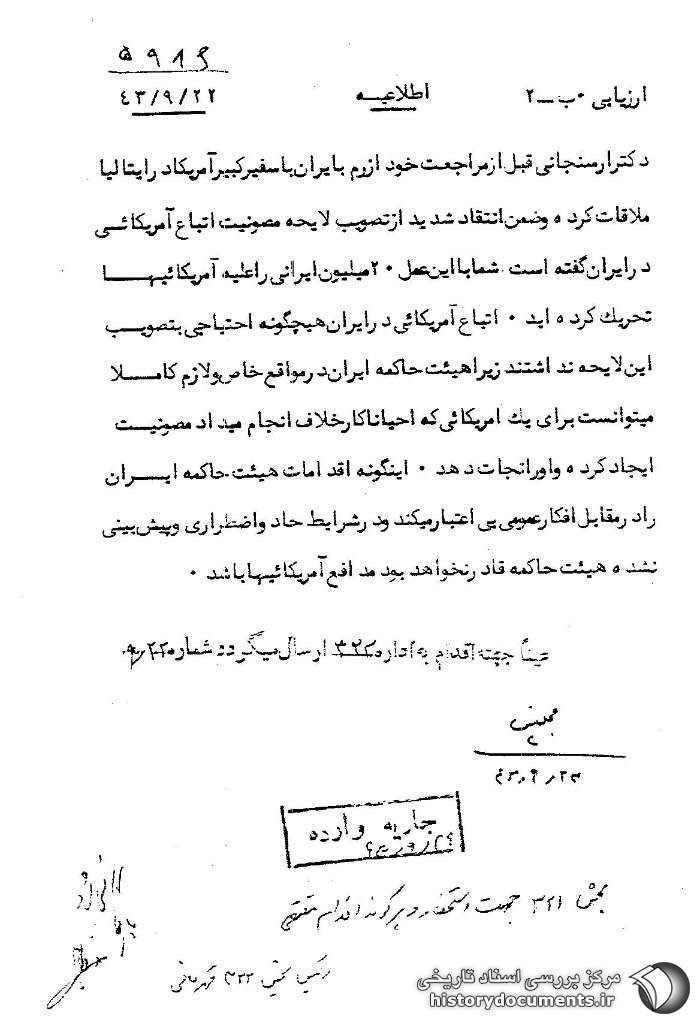 ۵۹۸۶
ارزیابی ۰ب ـ ۲ اطلاعیـه ۴۳/۹/۲۲
دکترارسنجانی قبل ازمراجعت خود ازرم بایران باسفیرکبیرآمریکادرایتالیا
ملاقات کرده وضمن انتقاد شدید ازتصویب لایحه مصونیت اتباع آمریکائـی
درایران گفته است شمابااین عمل ۲۰ میلیون ایرانی راعلیه آمریکائیهـــا
تحریك کرده اید ۰ اتباع آمریکائی درایران هیچگونه احتیاجی بتصویـب
این لایحه نداشتند زیراهیئت حاکمه ایران درمواقع خاص ولازم کامـلا
میتوانست برای یك امریکائی که احیاناکارخلاف انجام میداد مصونیـت
ایجاد کرده واورانجات دهد ۰ اینگونه اقدامات هیئت حاکمه ایـــران
رادرمقابل افکارعمومی بی اعتبارمیکند ودرشرایط حاد واضطراری وپیش بینی
نشده هیئت حاکمه قادرنخواهد بود مدافع آمریکائیهاباشد ۰
عیناً جهته اقدام به اداره ۳۲۲ ارسال میگردد شماره
۴۳/۹/۲۳
جاریه وارده
بخش ۳۲۱ جهت استحضار و هرگونه اقدام مقتضی
رئیس بخش ۳۲۲ قهرمانی
مرکز بررسی اسناد تاریخی
historydocuments.ir